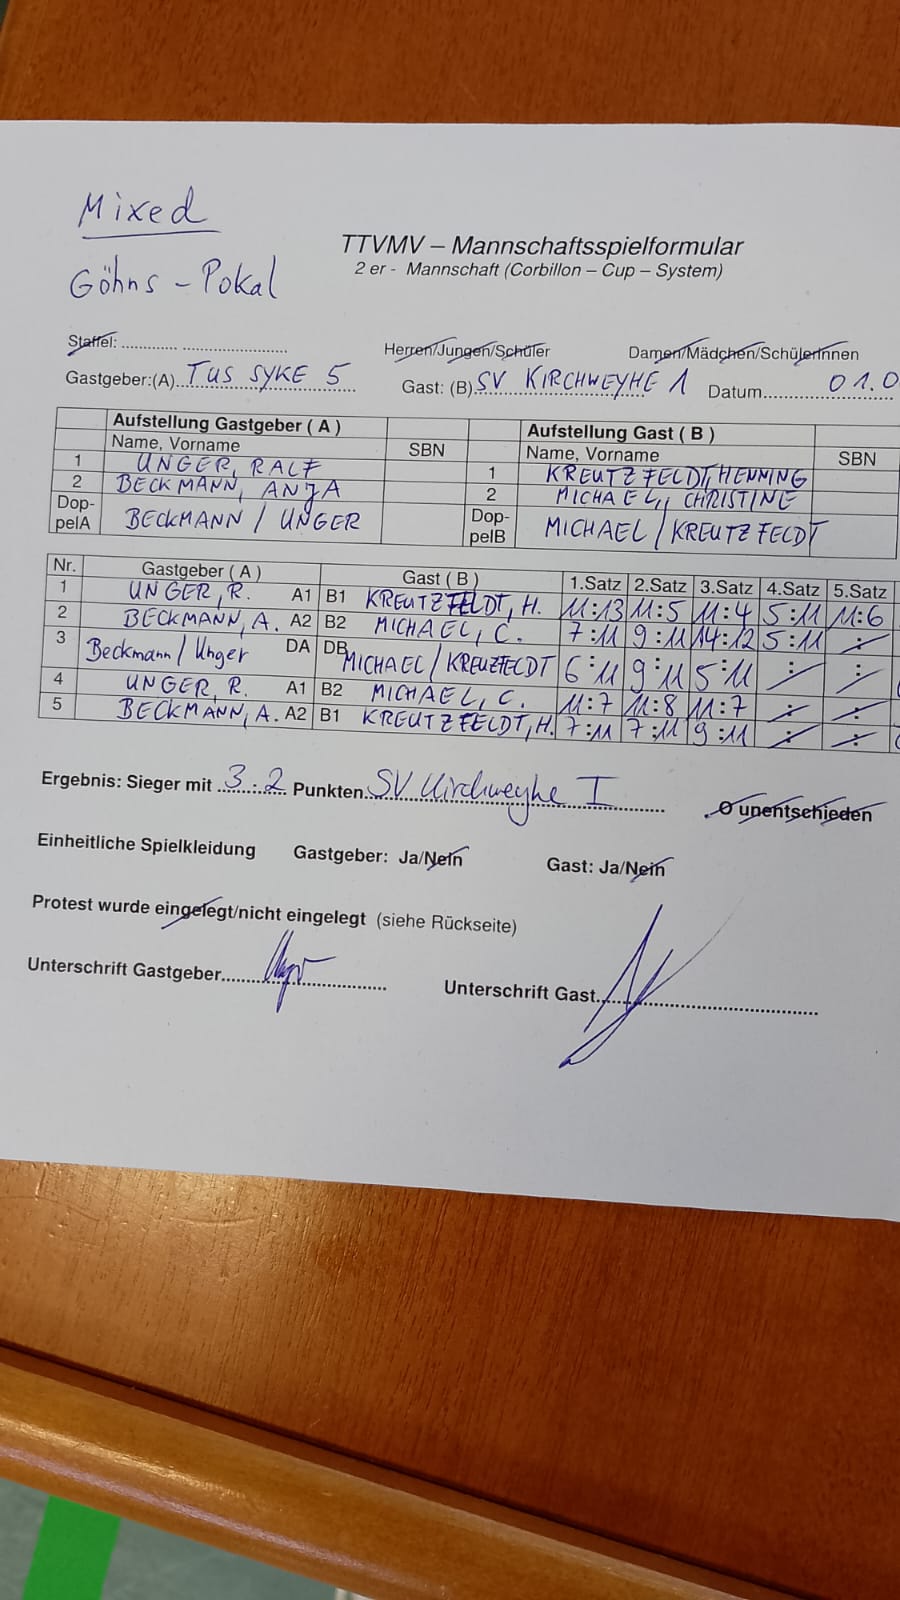 Mixed
Göhns - Pokal
TTVMV – Mannschaftsspielformular
2 er - Mannschaft (Corbillon – Cup – System)
Staffel: ............ .....................
Herren/Jungen/Schüler
Damen/Mädchen/Schülerinnen
Gastgeber:(A) TUS SYKE 5
Gast: (B) SV KIRCHWEYHE 1
Datum 01.0
Aufstellung Gastgeber ( A )
Name, Vorname SBN
1 UNGER, RALF
2 BECKMANN, ANJA
Dop-
pelA BECKMANN / UNGER
Aufstellung Gast ( B )
Name, Vorname SBN
1 KREUTZFELDT, HENNING
2 MICHAEL, CHRISTINE
Dop-
pelB MICHAEL / KREUTZFELDT
Nr. Gastgeber ( A ) Gast ( B ) 1.Satz 2.Satz 3.Satz 4.Satz 5.Satz
1 UNGER, R. A1 B1 KREUTZFELDT, H. 11:13 11:5 11:4 5:11 11:6
2 BECKMANN, A. A2 B2 MICHAEL, C. 7:11 9:11 14:12 5:11 :
3 Beckmann / Unger DA DB MICHAEL / KREUZFELDT 6:11 9:11 5:11 : :
4 UNGER, R. A1 B2 MICHAEL, C. 11:7 11:8 11:7 : :
5 BECKMANN, A. A2 B1 KREUTZFELDT, H. 7:11 7:11 9:11 : :
Ergebnis: Sieger mit 3:2 Punkten SV Kirchweyhe I
O unentschieden
Einheitliche Spielkleidung Gastgeber: Ja/Nein Gast: Ja/Nein
Protest wurde eingelegt/nicht eingelegt (siehe Rückseite)
Unterschrift Gastgeber
Unterschrift Gast